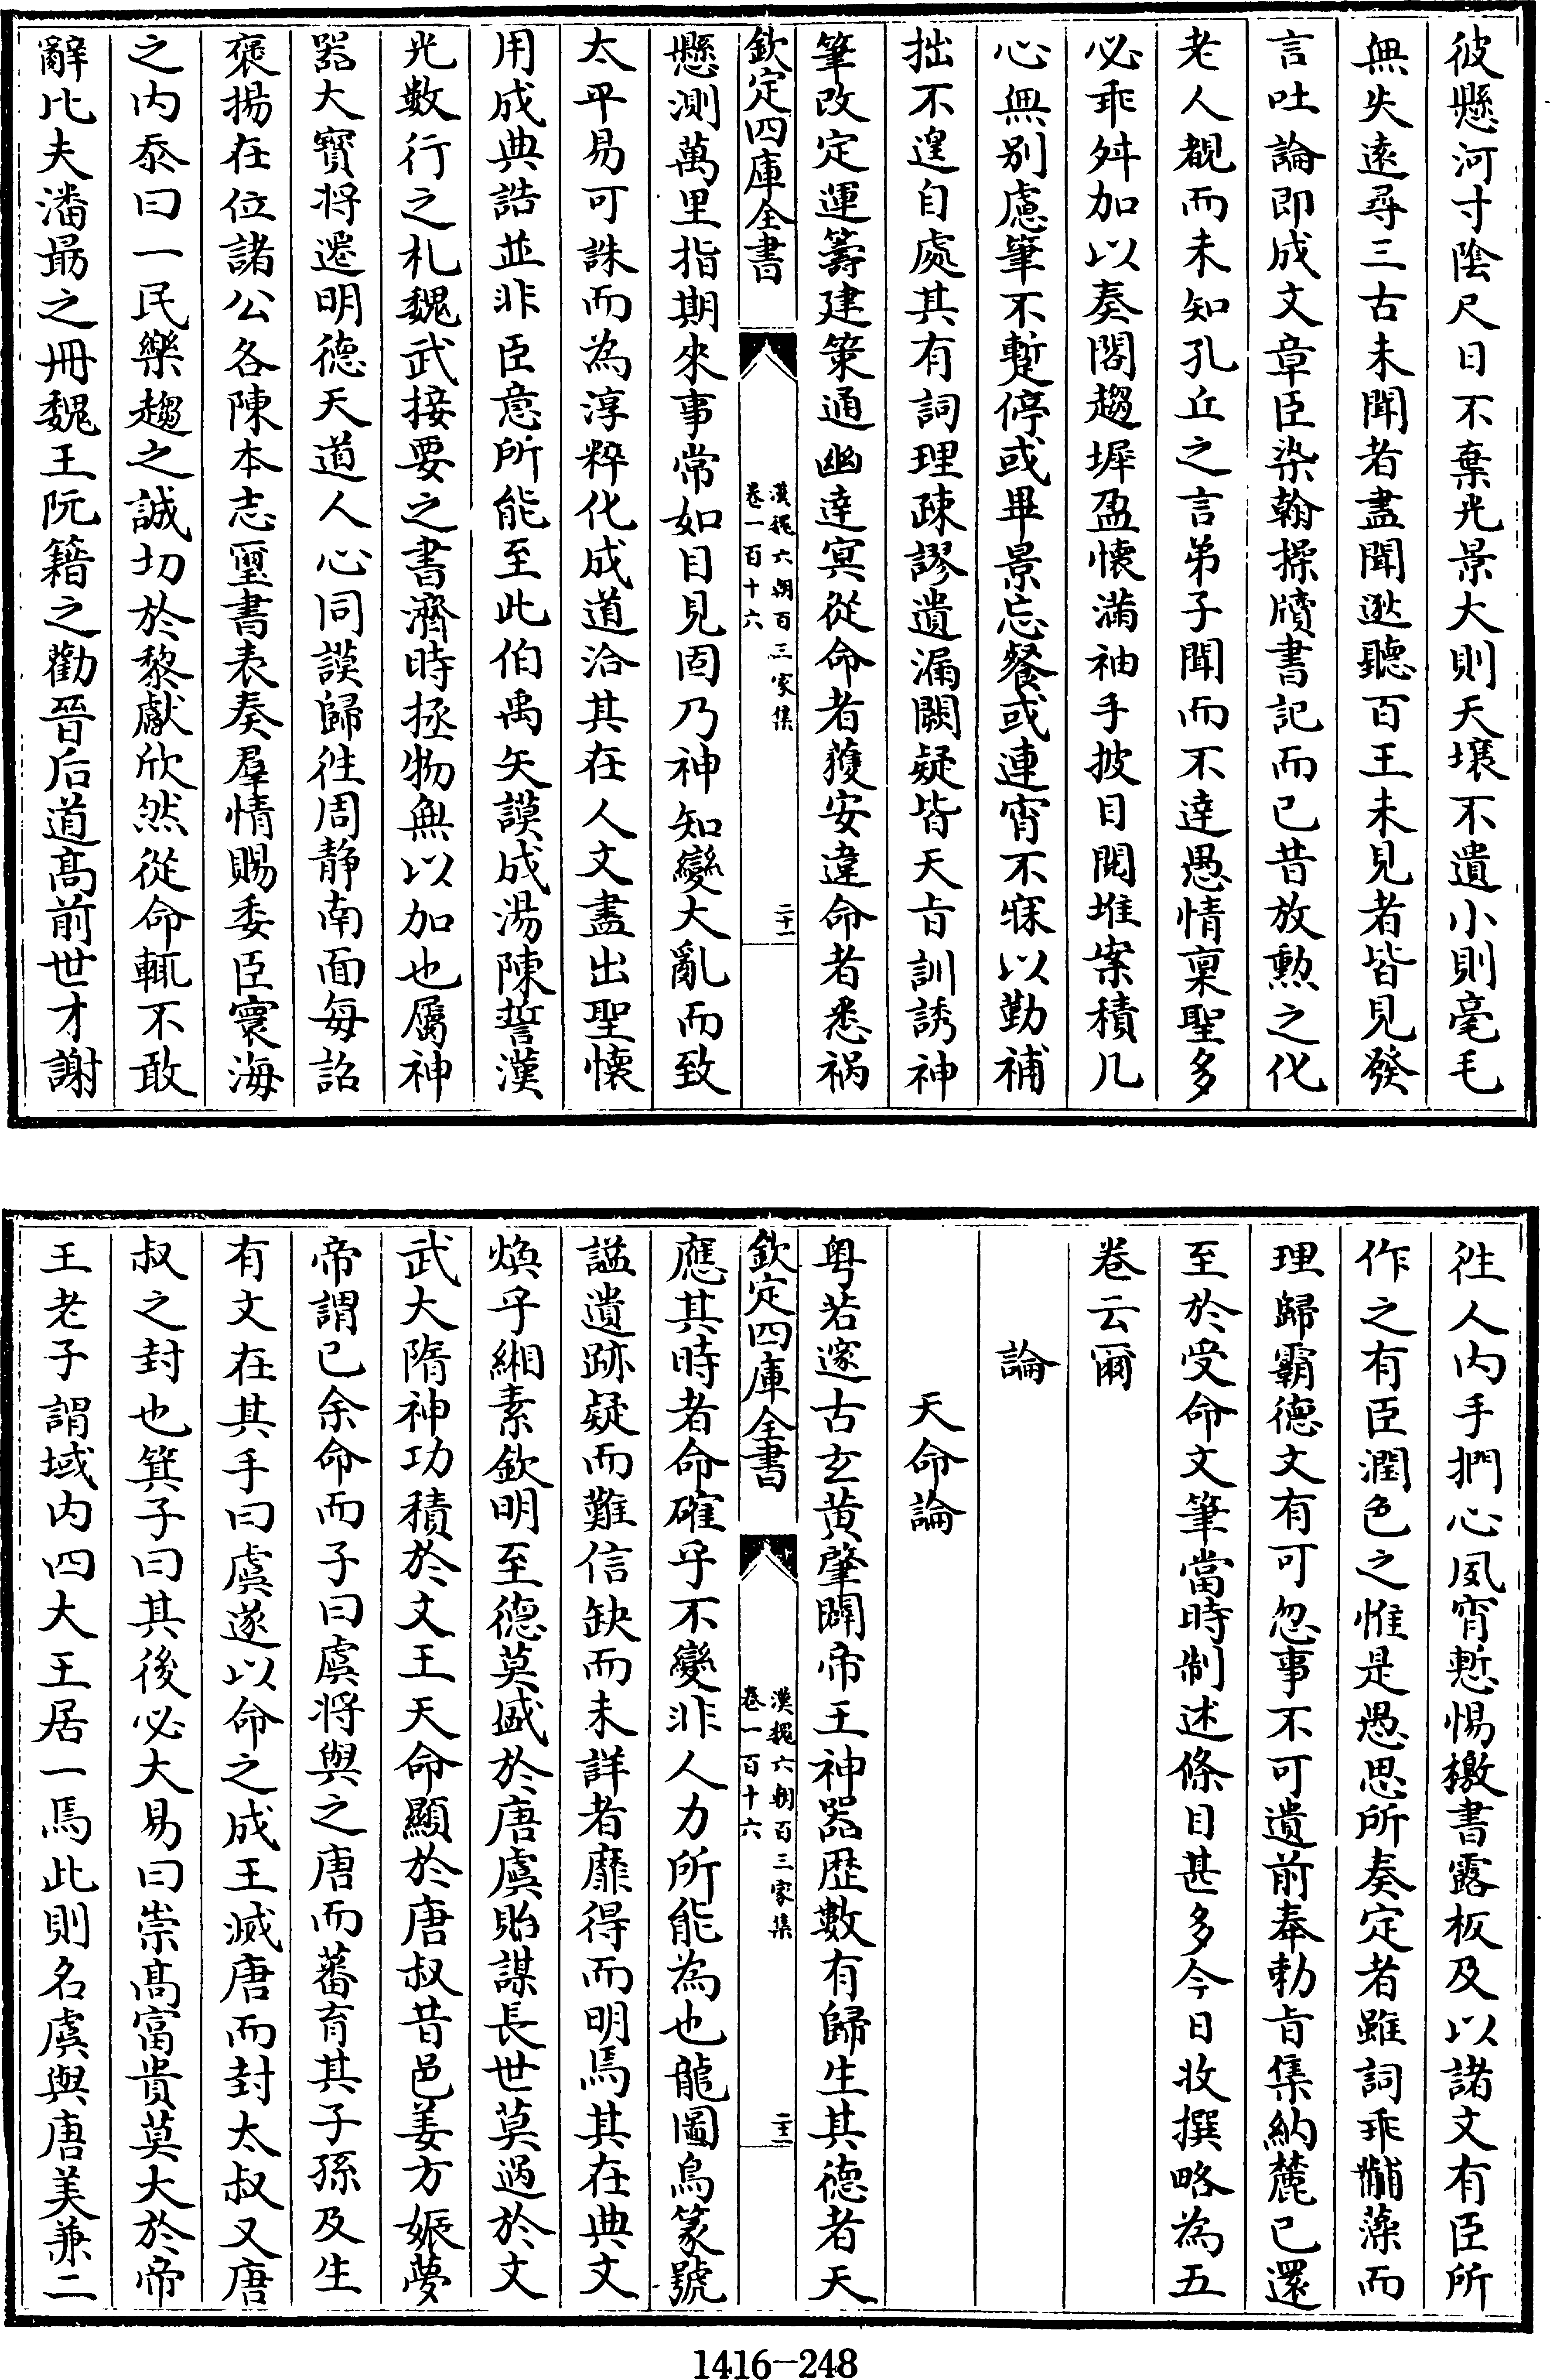 彼懸河寸陰尺日不棄光景大則天壤不遺小則毫毛
無失遠尋三古未聞者盡聞逖聽百王未見者皆見發
言吐論即成文章臣染翰操牘書記而已昔放勲之化
老人覩而未知孔丘之言弟子聞而不達愚情稟聖多
必乖舛加以奏閣趨墀盈懷滿袖手披目閱堆案積几
心無別慮筆不蹔停或畢景忘餐或連宵不寐以勤補
拙不遑自處其有詞理疎謬遺漏闕疑皆天旨訓誘神
筆改定運籌建策通幽達㝠從命者獲安違命者悉禍
欽定四庫全書
漢魏六朝百三家集
卷一百十六
二十一
懸測萬里指期來事常如目見固乃神知變大亂而致
太平易可誅而為淳粹化成道洽其在人文盡出聖懷
用成典誥並非臣意所能至此伯禹矢謨成湯陳誓漢
光數行之札魏武接要之書濟時拯物無以加也屬神
器大寶將遷明德天道人心同謨歸徃周静南面每詔
褒揚在位諸公各陳本志璽書表奏羣情賜委臣寰海
之内忝曰一民樂趨之誠切於黎獻欣然從命輒不敢
辭比夫潘朂之冊魏王阮籍之勸晉后道髙前世才謝
徃人内手捫心夙宵慙惕檄書露板及以諸文有臣所
作之有臣潤色之惟是愚思所奏定者雖詞乖黼藻而
理歸霸德文有可忽事不可遺前奉勅旨集納麓已還
至於受命文筆當時制述條目甚多今日收撰略為五
卷云爾
論
天命論
粤若邃古玄黄肇闢帝王神器歴數有歸生其德者天
欽定四庫全書
漢魏六朝百三家集
卷一百十六
二十二
應其時者命確乎不變非人力所能為也龍圖鳥篆號
諡遺跡疑而難信缺而未詳者靡得而明焉其在典文
焕乎緗素欽明至德莫盛於唐虞貽謀長世莫過於文
武大隋神功積於文王天命顯於唐叔昔邑姜方娠夢
帝謂已余命而子曰虞將與之唐而蕃育其子孫及生
有文在其手曰虞遂以命之成王滅唐而封太叔又唐
叔之封也箕子曰其後必大易曰崇髙富貴莫大於帝
王老子謂域内四大王居一焉此則名虞與唐美兼二
1416-248